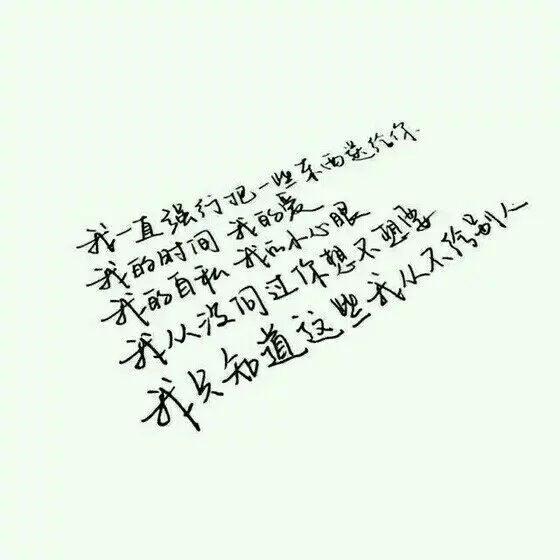 我一直强行把一些东西送给你
我的时间 我的爱
我的自私 我的小心眼
我从没问过你想不想要
我只知道这些我从不给别人